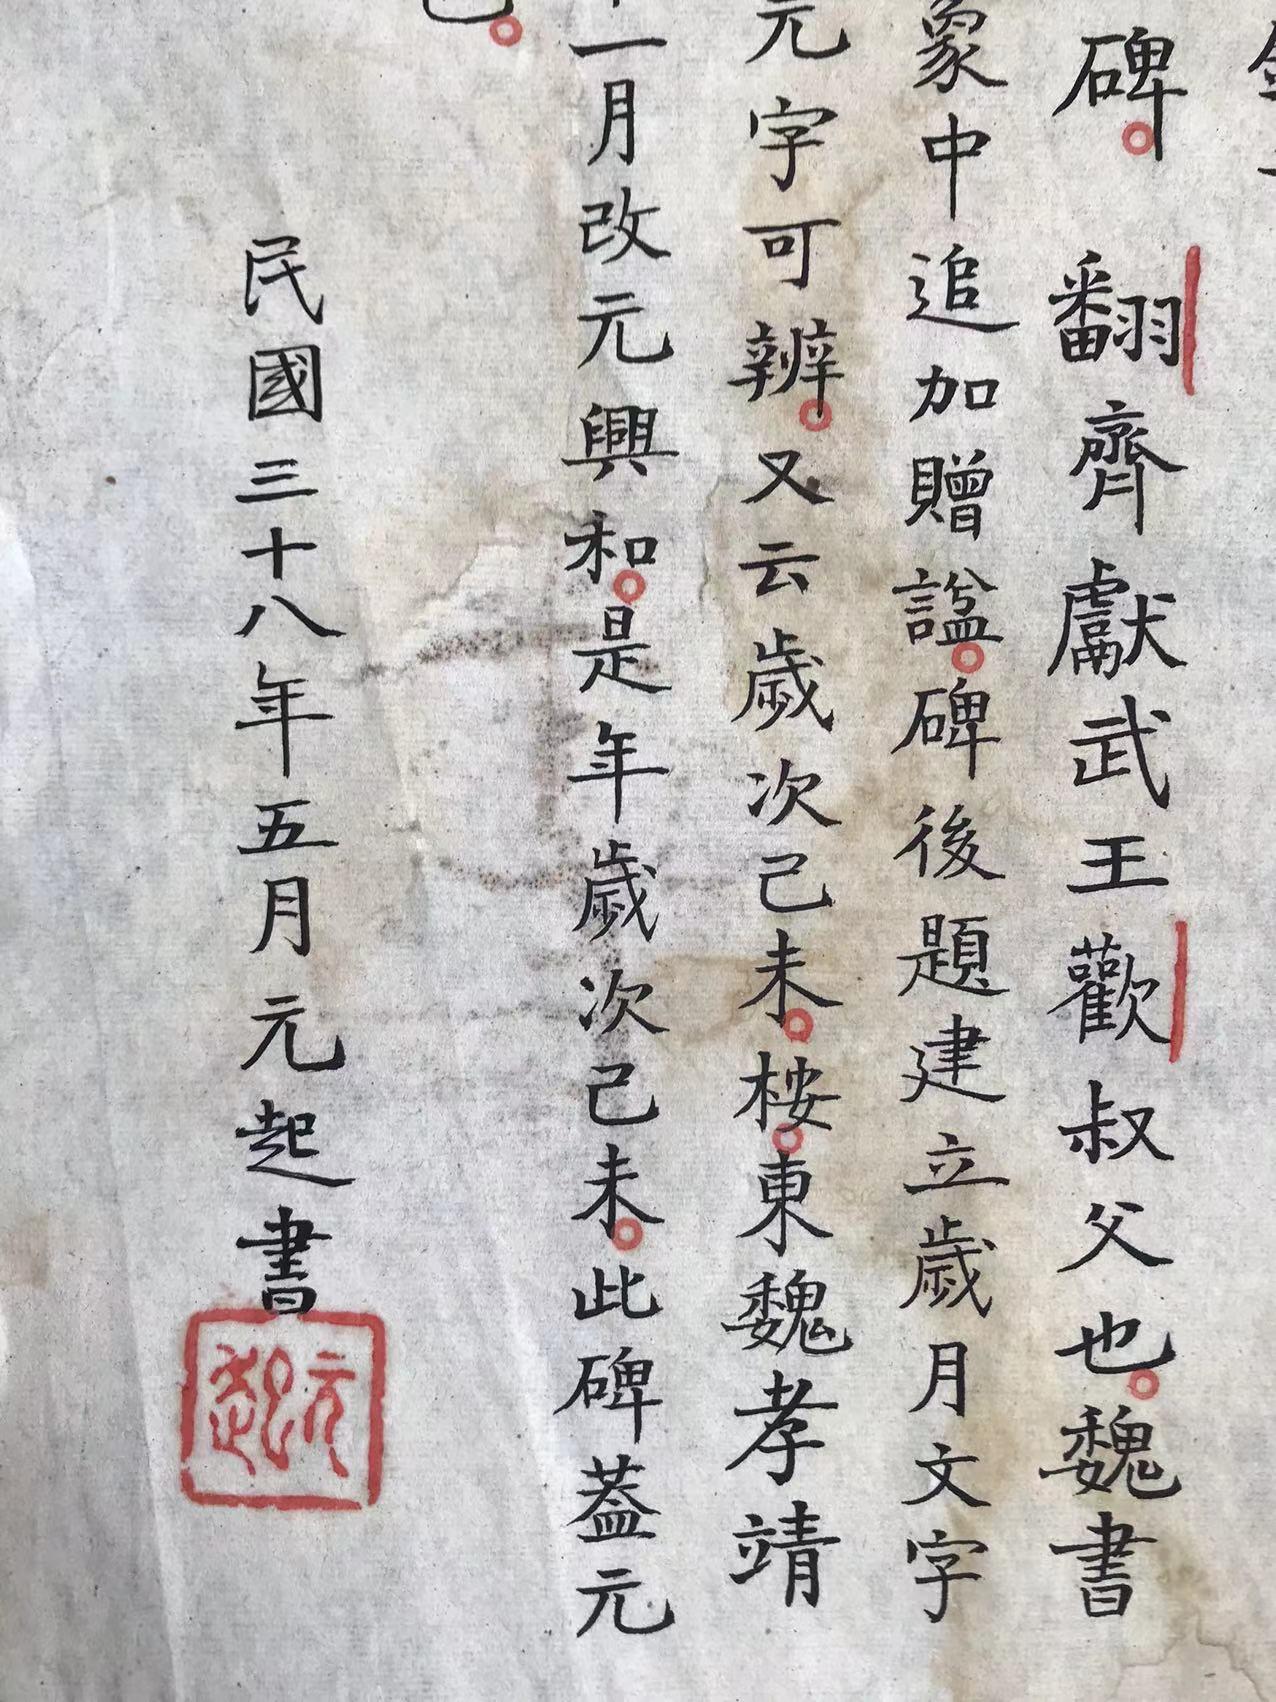 碑。翻齊獻武王歡叔父也。魏書
象中追加贈諡。碑後題建立歲月文字
元字可辨。又云歲次己未。桉。東魏孝靖
一月改元興和。是年歲次己未。此碑蓋元
也。
民國三十八年五月元起書
元起